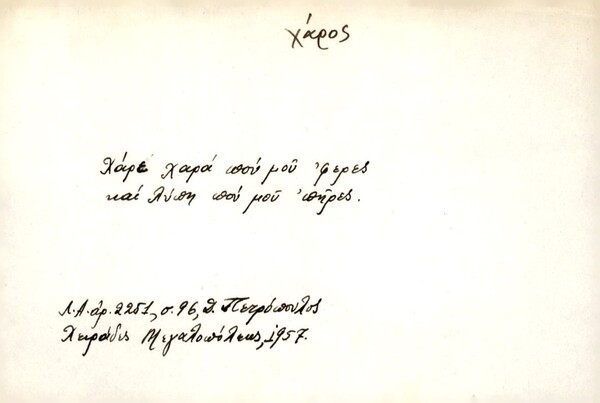 χάρος
Χάρε χαρά πού μοῦ 'φερες
καί λύπη πού μοῦ 'πῆρες.
Λ.Α. ἀρ. 2251, σ. 96, Δ. Πετρόπουλος
Χειράδες Μεγαλοπόλεως, 1957.